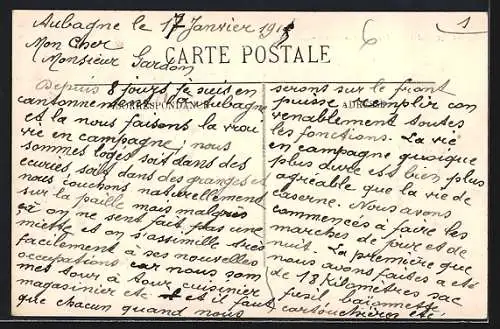 Aubagne le 17 Janvier 191
1
Mon Cher
Monsieur Gardon
CARTE POSTALE
CORRESPONDANCE
ADRESSE
Depuis 8 jours je suis en
cantonnement à Aubagne
et la nous faisons la vrai
vie en campagne; nous
sommes logés soit dans des
écuries, soit dans des granges et
nous couchons naturellement
sur la paille mais malgrés
on ne sent fait pas une
miette et on s'assimille très
facilement à ses nouvelles
occupations car nous som
mes tour à tour cuisinier
magasinier etc et il faut
que chacun quand nous
serons sur le front
puisse remplir con
venablement toutes
les fonctions. La vie
en campagne quoique
plus dure est bien plus
agréable que la vie de
caserne. Nous avons
commencés à faire les
marches de jour et de
nuit. La première que
nous avons faites a été
de 18 Kilomètres sac
fusil baïonnette
cartouchières etc